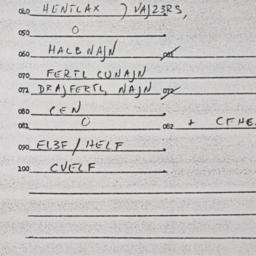 040 HENTLAX ) VAJ23RS,
050 0
060 HALB NAJN 061
070 FERTL CUNAJN
072 DRAJFERTL NAJN 072
080 CEN
081 0 082 + CFHE
090 EL3F / HELF
100 CVELF